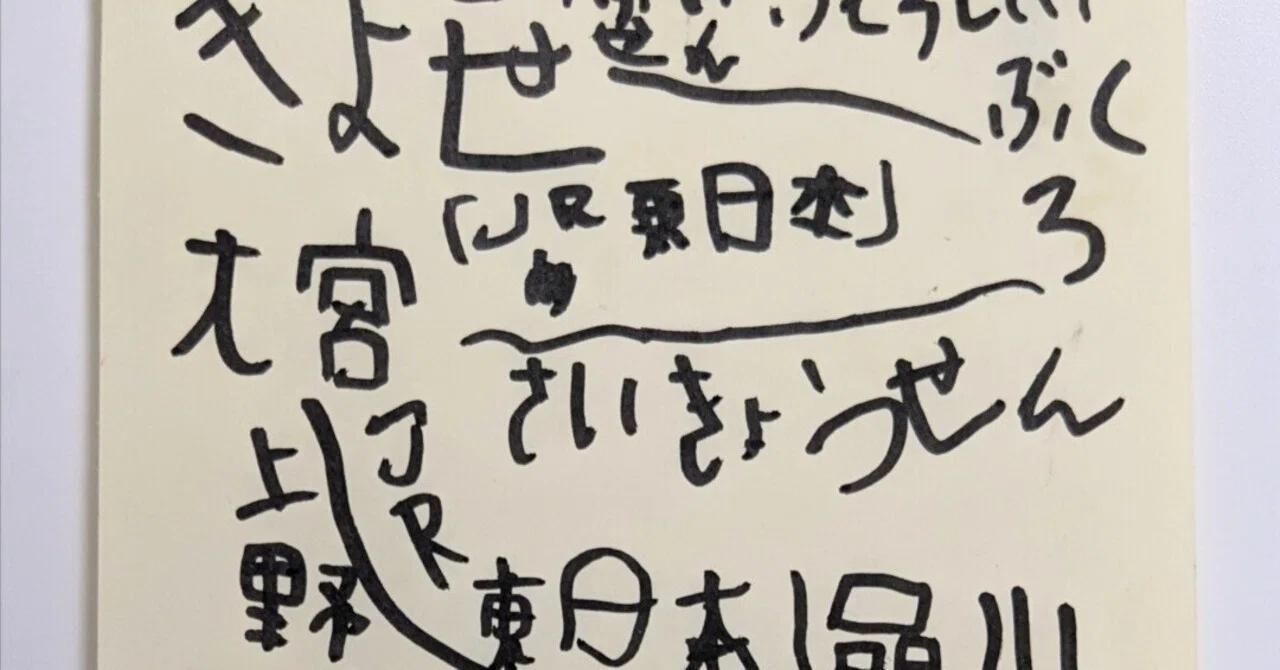 きよせ
ぶくろ
「JR東日本」
大宮
さいきょうせん
上野
JR東日本
品川